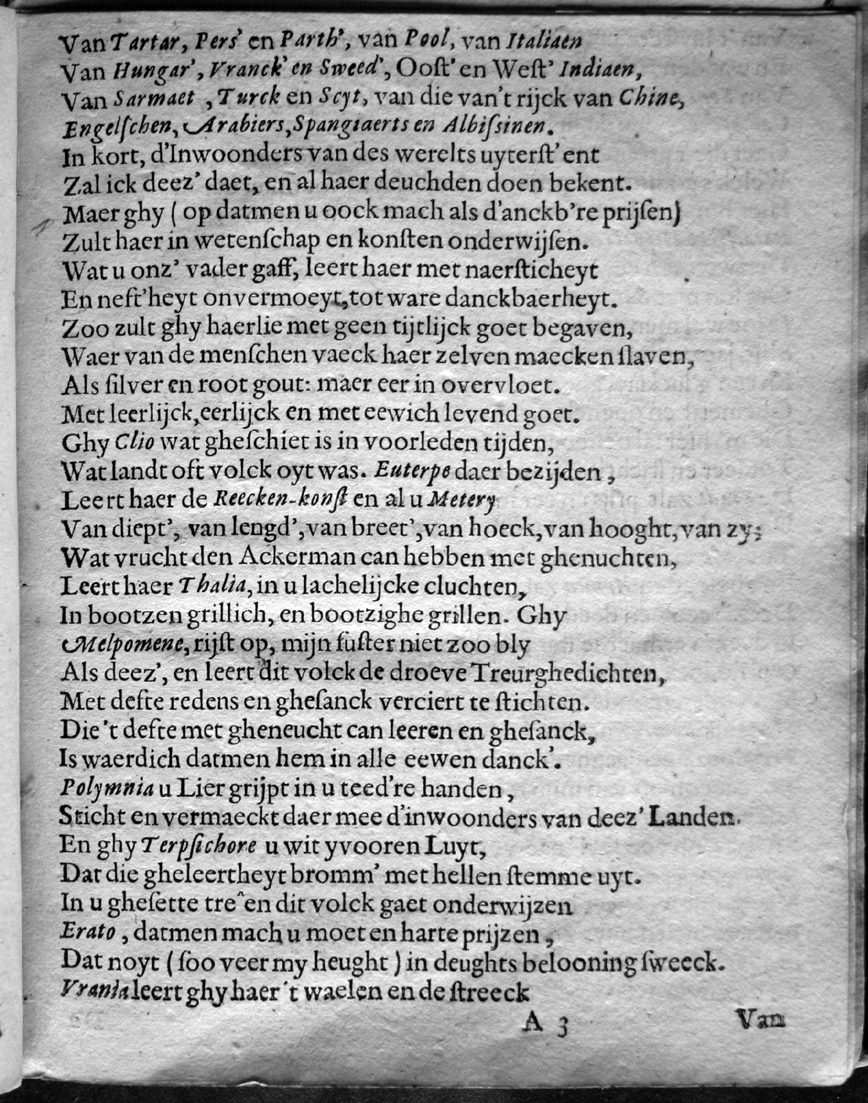 Van Tartar, Pers' en Parth', van Pool, van Italiaen
Van Hungar', Vranck' en Sweed', Ooſt' en Weſt' Indiaen,
Van Sarmaet , Turck en Scyt, van die van't rijck van Chine,
Engelſchen, Arabiers, Spangiaerts en Albiſsinen.
In kort, d'Inwoonders van des werelts uyterſt' ent
Zal ick deez' daet, en al haer deuchden doen bekent.
Maer ghy ( op datmen u oock mach als d'anckb're prijſen)
Zult haer in wetenſchap en konſten onderwijſen.
Wat u onz' vader gaff, leert haer met naerſticheyt
En neſt'heyt onvermoeyt,tot ware danckbaerheyt.
Zoo zult ghy haerlie met geen tijtlijck goet begaven,
Waer van de menſchen vaeck haer zelven maecken ſlaven,
Als ſilver en root gout: maer eer in overvloet.
Met leerlijck,eerlijck en met eewich levend goet.
Ghy Clio wat gheſchiet is in voorleden tijden,
Wat landt oft volck oyt was. Euterpe daer bezijden ,
Leert haer de Reecken-konſt en al u Metery
Van diept', van lengd',van breet',van hoeck,van hooght,van zy;
Wat vrucht den Ackerman can hebben met ghenuchten,
Leert haer Thalia, in u lachelijcke cluchten,
In bootzen grillich, en bootzighe grillen. Ghy
Melpomene, rijſt op, mijn ſuſter niet zoo bly
Als deez', en leert dit volck de droeve Treurghedichten,
Met defte redens en gheſanck verciert te ſtichten.
Die 't defte met gheneucht can leeren en gheſanck,
Is waerdich datmen hem in alle eewen danck'.
Polymnia u Lier grijpt in u teed're handen ,
Sticht en vermaeckt daer mee d'inwoonders van deez' Landen.
En ghy Terpſichore u wit yvooren Luyt,
Dat die gheleertheyt bromm' met hellen ſtemme uyt.
In u gheſette tre^en dit volck gaet onderwijzen
Erato , datmen mach u moet en harte prijzen ,
Dat noyt ( ſoo veer my heught ) in deughts belooning ſweeck.
Vrania leert ghy haer 't waelen en de ſtreeck
A 3 Van